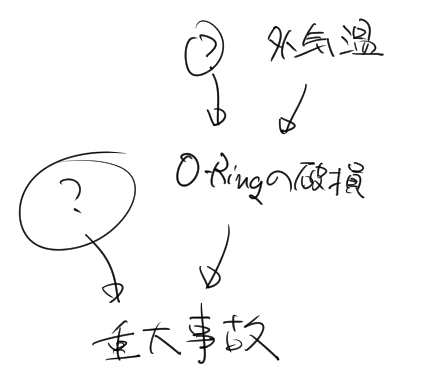 ? 外気温
O-Ringの破損
?
重大事故